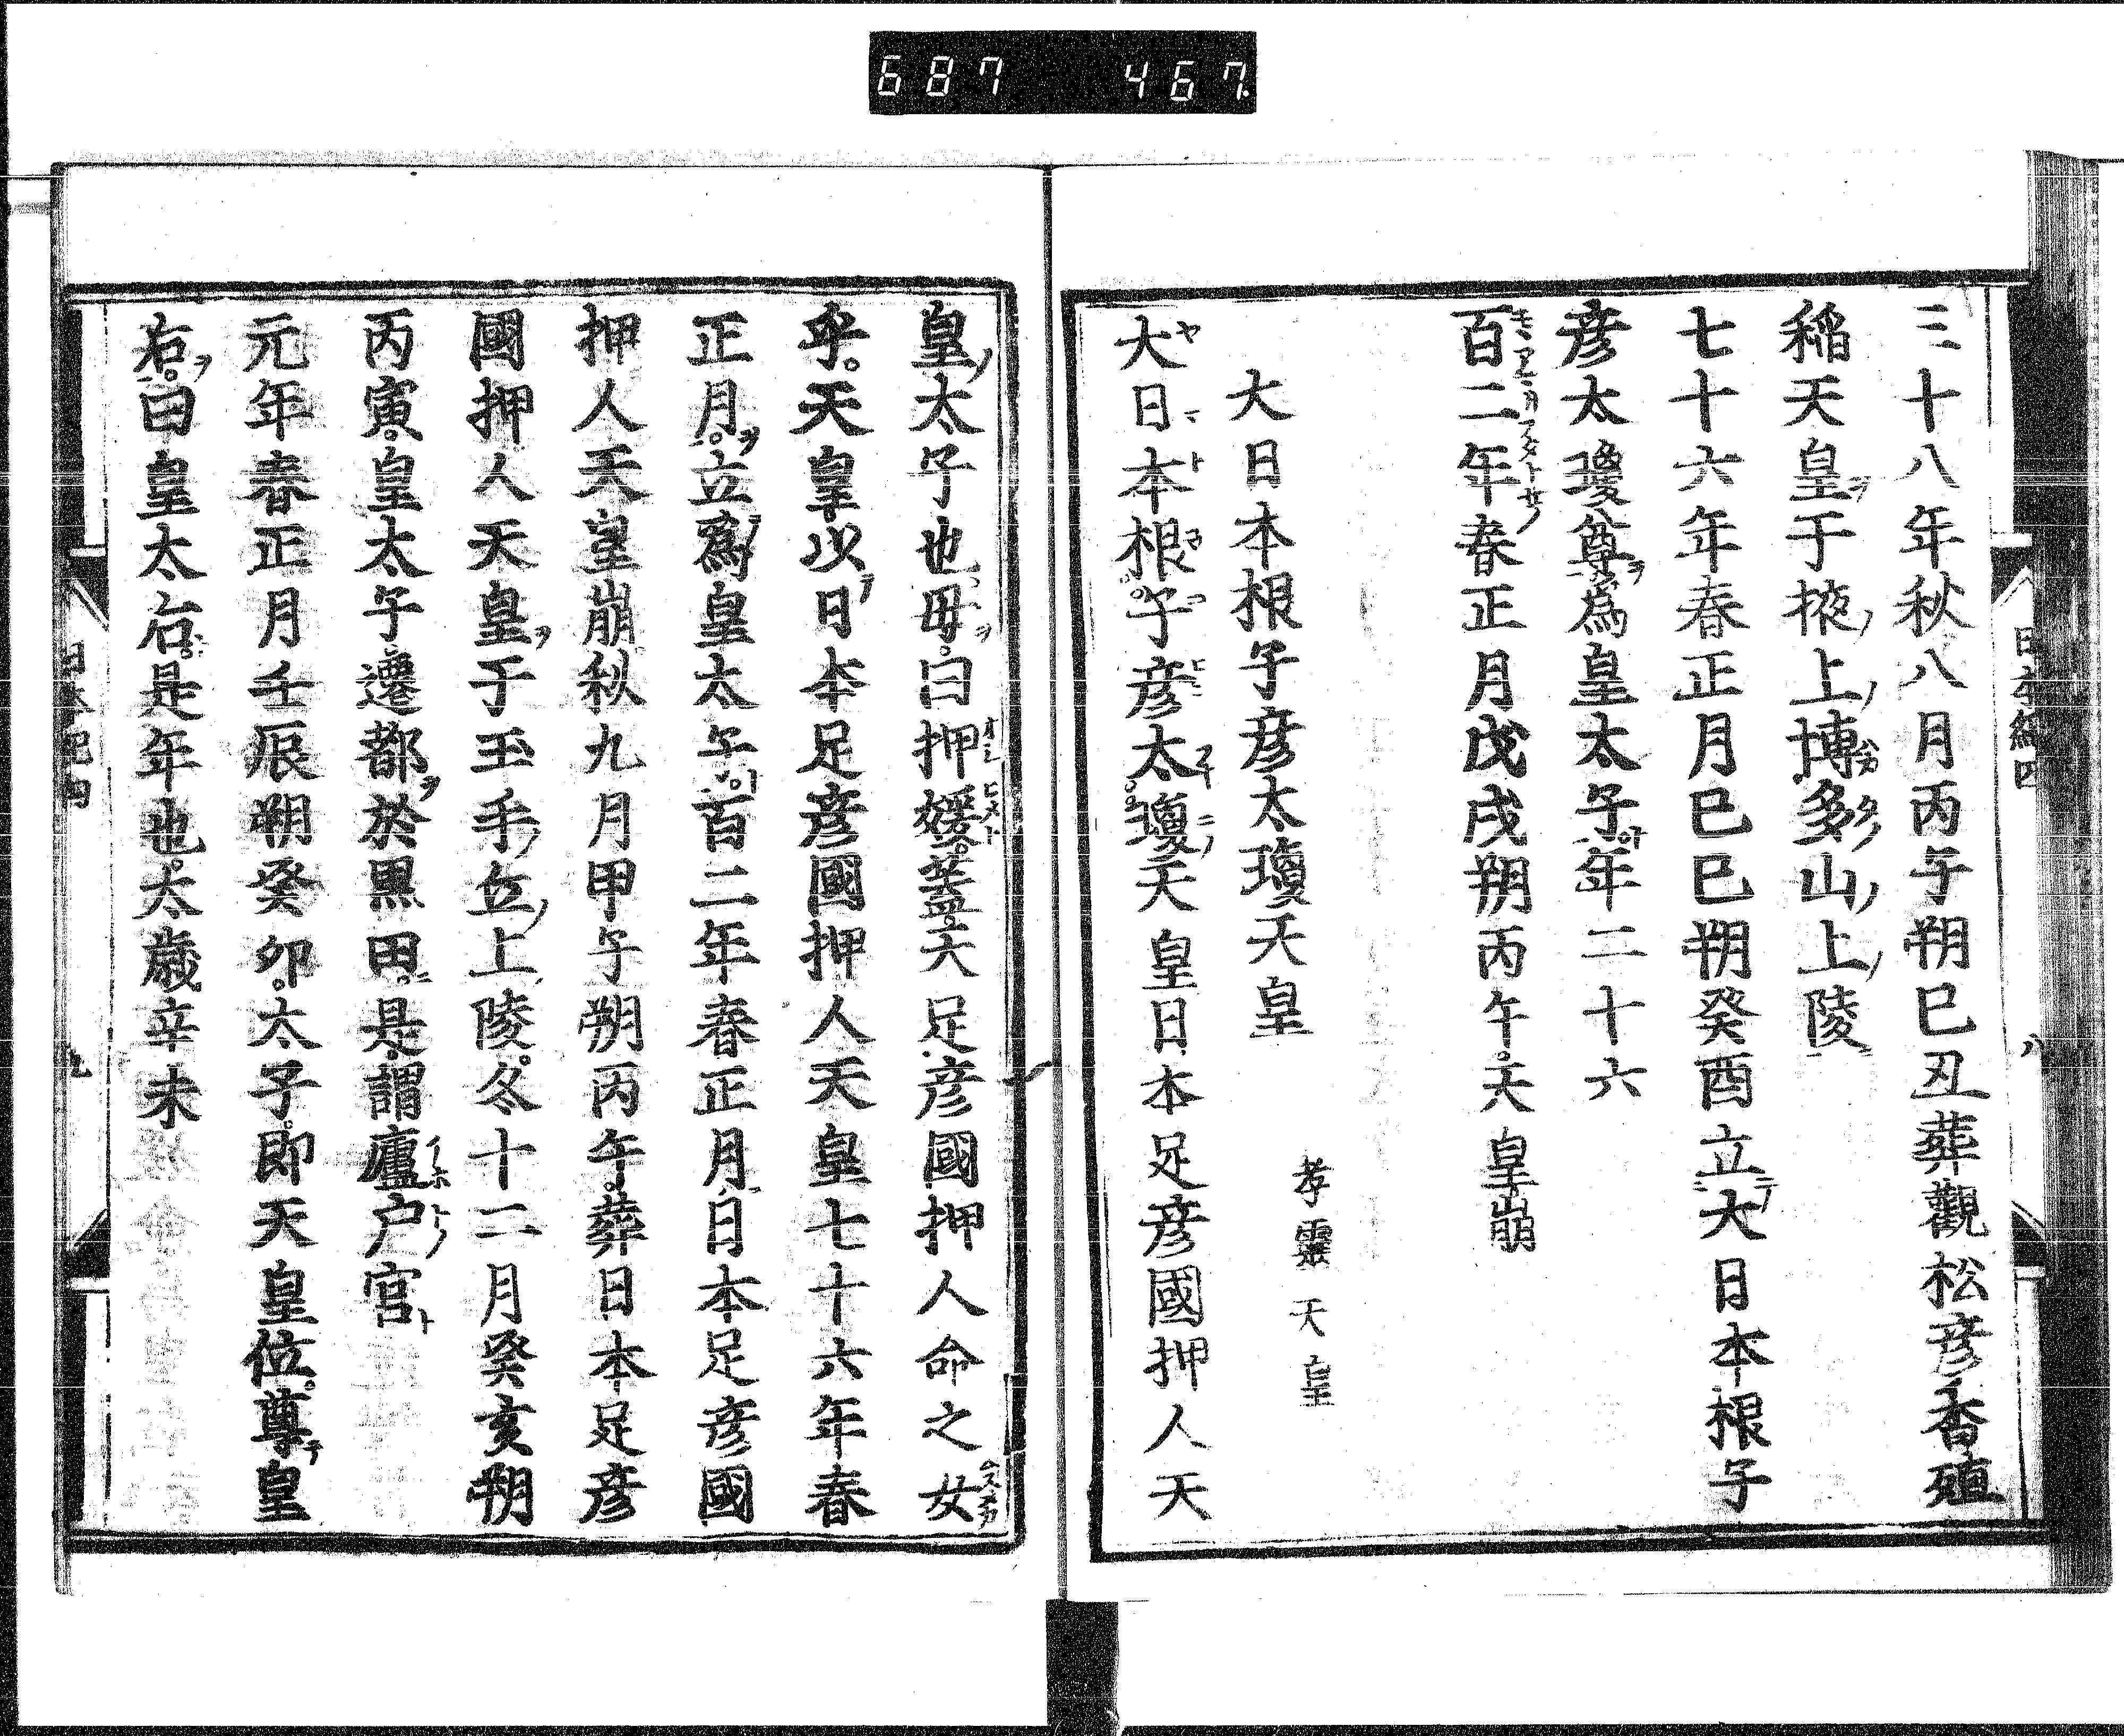 687 467
三十八年秋八月丙午朔巳丑葬觀松彦香殖
稲天皇于掖上博多山上陵
七十六年春正月巳巳朔癸酉立大日本根子
彦太瓊尊為皇太子年二十六
百二年春正月戊戌朔丙午天皇崩
孝靈天皇
大日本根子彦太瓊天皇
大日本根子彦太瓊天皇日本足彦國押人天
皇太子也母曰押媛蓋天足彦國押人命之女
乎天皇以日本足彦國押人天皇七十六年春
正月立爲皇太子百二年春正月日本足彦國
押人天皇崩秋九月甲午朔丙午葬日本足彦
國押人天皇于玉手丘上陵冬十二月癸亥朔
丙寅皇太子遷都於黒田是謂廬户宮
元年春正月壬辰朔癸卯太子即天皇位尊皇
后曰皇太后是年也太歳辛未